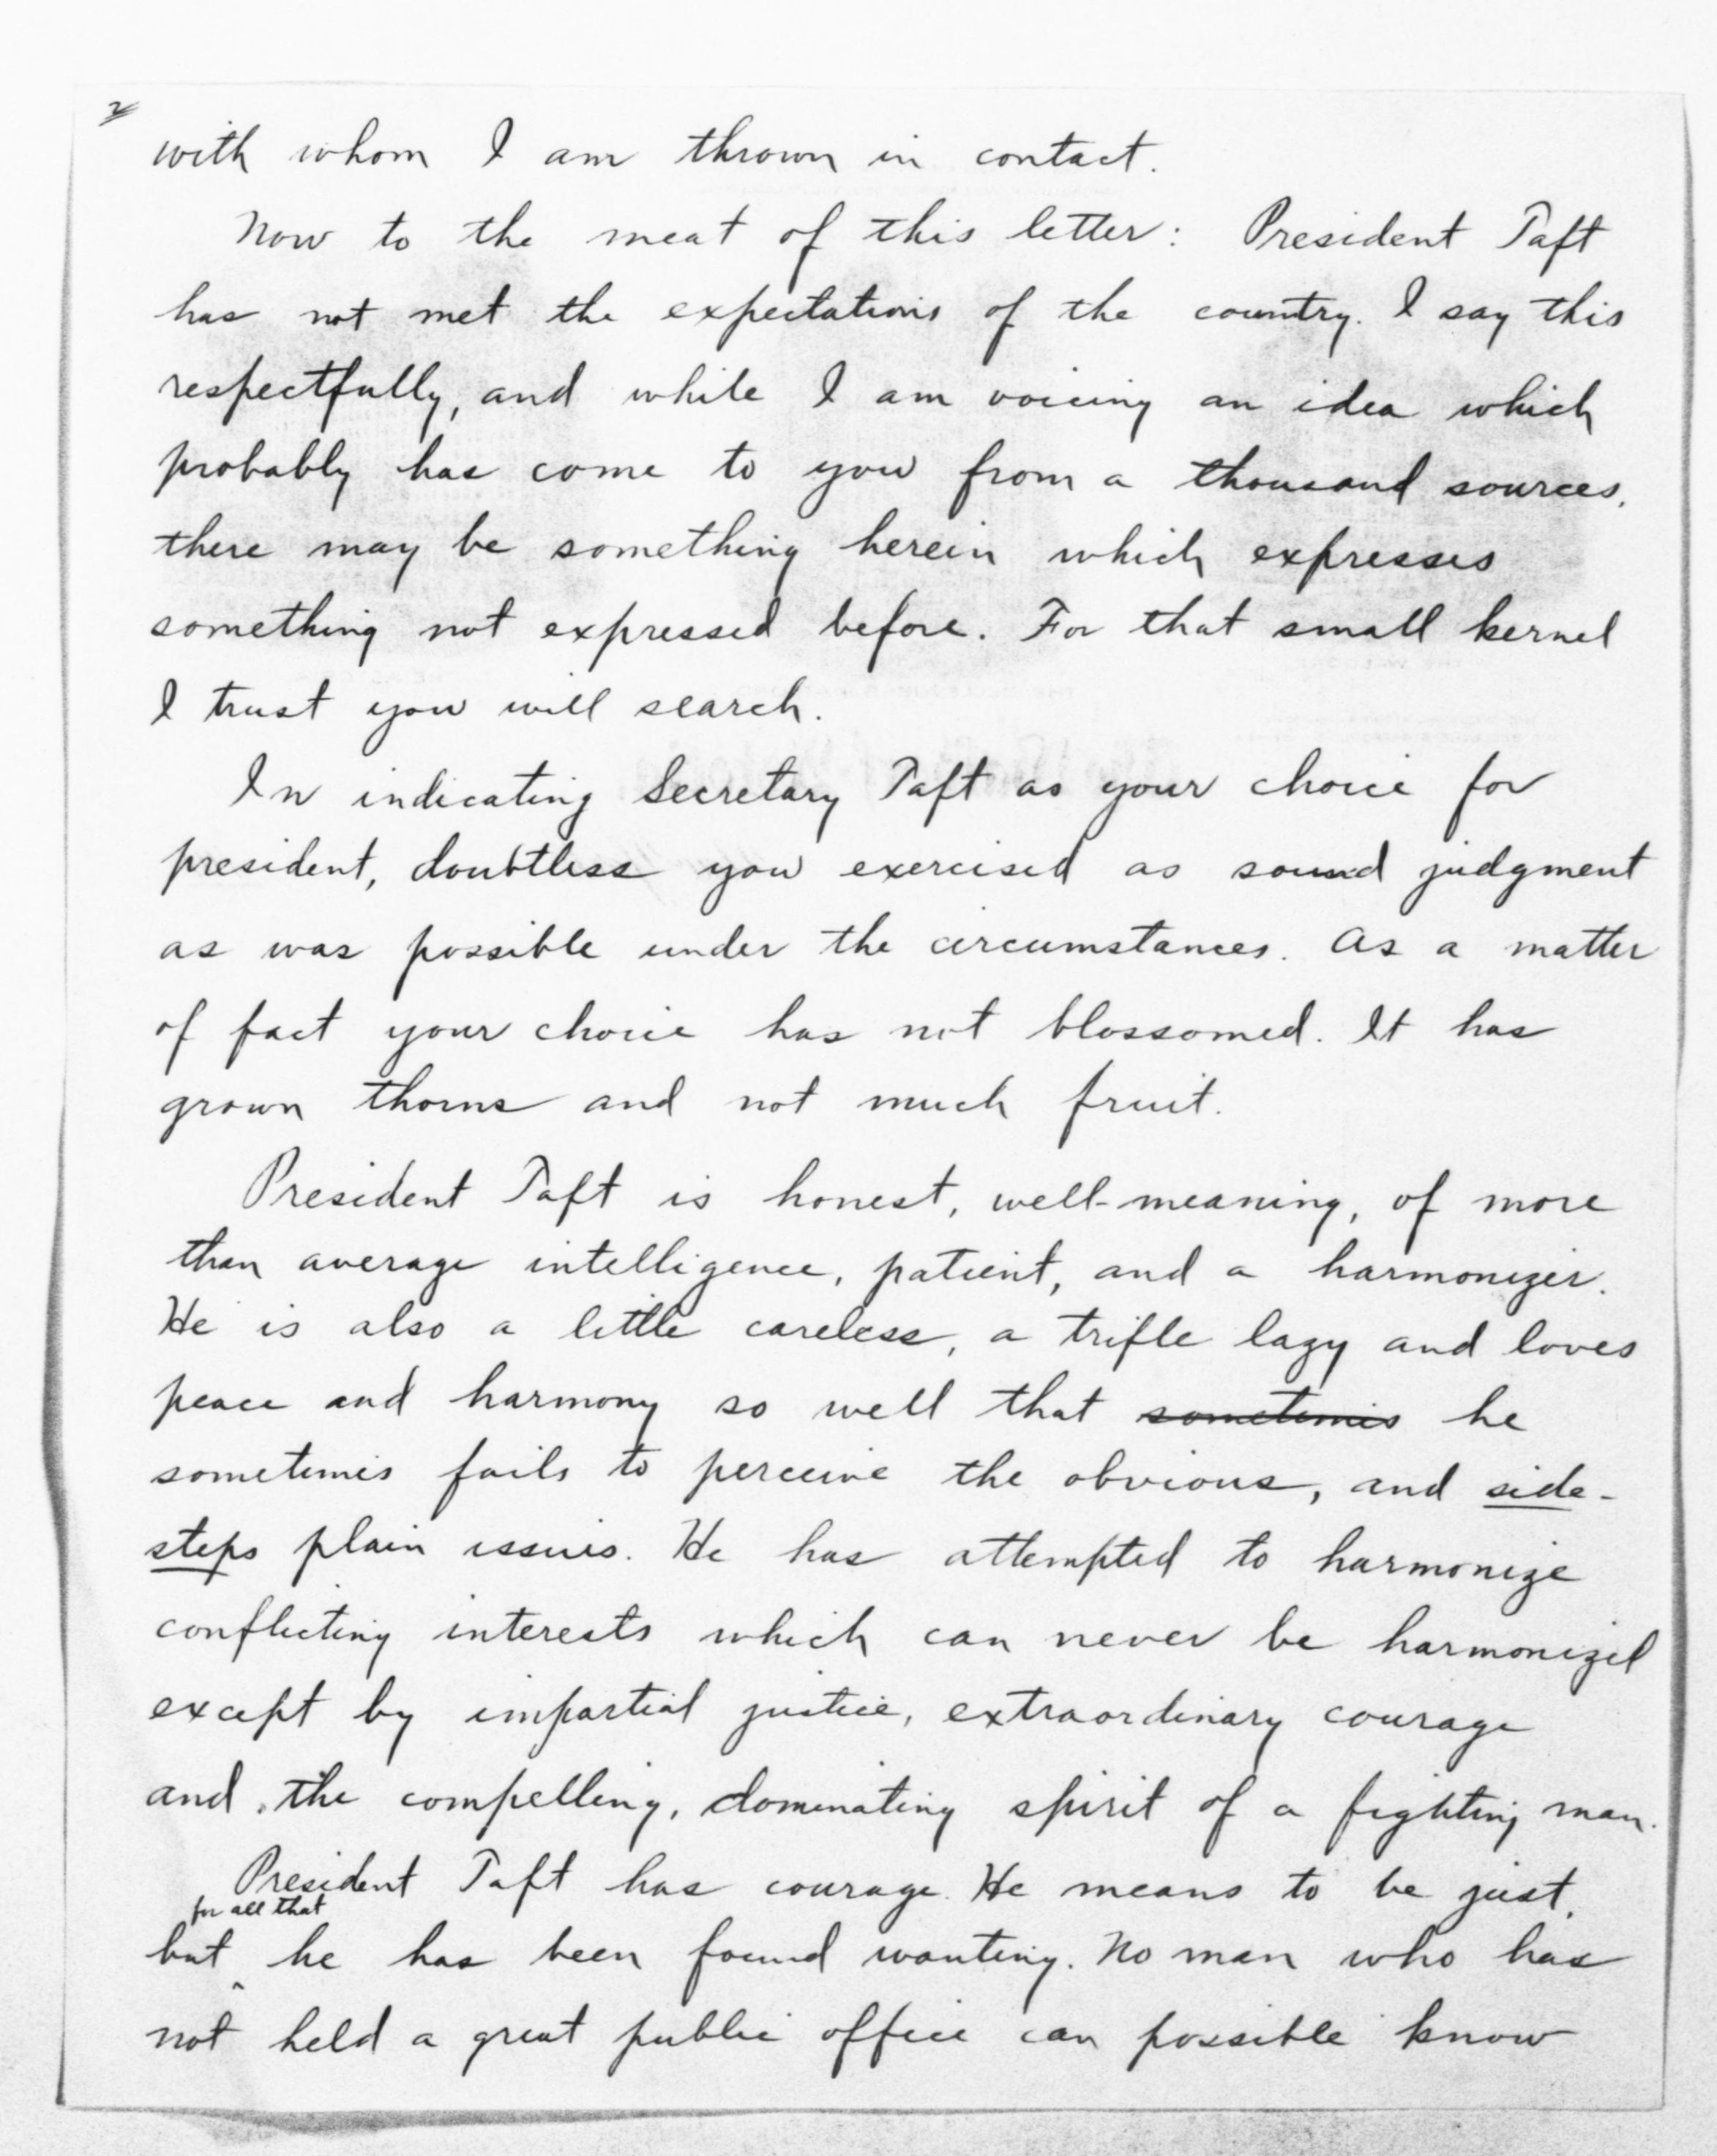 2
with whom I am thrown in contact.
Now to the meat of this letter: President Taft
has not met the expectations of the country. I say this
respectfully, and while I am voicing an idea which
probably has come to you from a thousand sources,
there may be something herein which expresses
something not expressed before. For that small kernel
I trust you will search.
In indicating Secretary Taft as your choice for
president, doubtless you exercised as sound judgment
as was possible under the circumstances. As a matter
of fact your choice has not blossomed. It has
grown thorns and not much fruit.
President Taft is honest, well-meaning, of more
than average intelligence, patient, and a harmonizer.
He is also a little careless, a trifle lazy and loves
peace and harmony so well that sometimes he
sometimes fails to perceive the obvious, and side-
steps plain issues. He has attempted to harmonize
conflicting interests which can never be harmonized
except by impartial justice, extraordinary courage
and the compelling, dominating spirit of a fighting man.
President Taft has courage. He means to be just,
for all that
but he has been found wanting. No man who has
not held a great public office can possible know